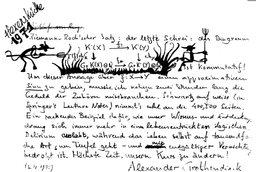 Hexenküche 1971
Riemann-Roch'scher Satz: der letzte Schrei: das Diagramm
ist kommutatif!
Um dieser Aussage über f: X → Y einen approximativen
Sinn zu geben, musste ich nahezu zwei Stunden lang die
Geduld der Zuhörer missbrauchen. Schwarz auf weiss (in
Springer's Lecture Notes) nimmt's wohl an die 400, 500 Seiten.
Ein packendes Beispiel dafür, wie unser Wissens- und Entdeckungs-
drang sich immer mehr in einem lebensentrückten logischen
Delirium auslebt, während das Leben selbst auf tausendfache
Art zum Teufel geht - und mit endgültiger Vernichtung
bedroht ist. Höchste Zeit, unsern Kurs zu ändern!
Alexander Grothendieck